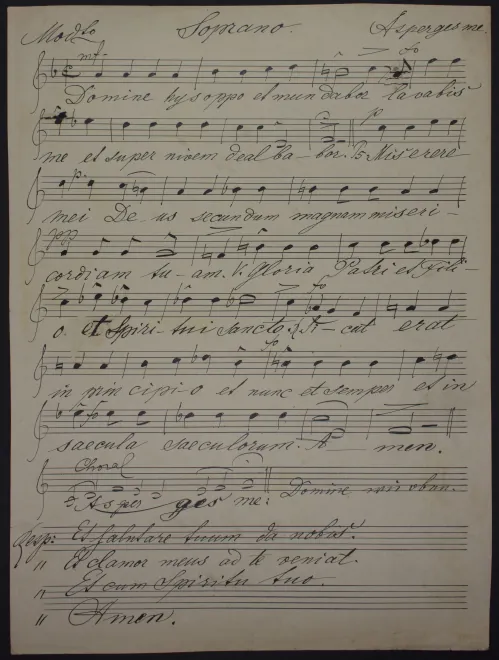 Mod^to Soprano. Asperges me.
mf fo
Domine hysoppo et mundabor lavabis
p
me et super nivem dealba-bor. Ps Miserere
p.
mei De-us secundum magnam miseri-
pp
cordiam tu-am. V. Gloria Patri et Fili-
fo
o. et Spiri-tui Sancto. Si-cut erat
fo
in principi-o et nunc et semper et in
fo
saecula saeculorum. A-men.
Choral
Asperges me: Domine
Resp: Et salutare tuum da nobis.
" Et clamor meus ad te veniat.
" Et cum Spiritu tuo.
" Amen.